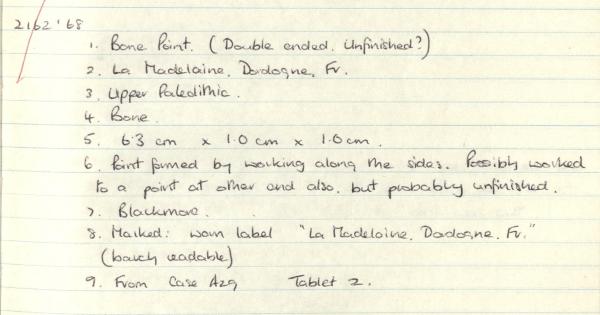 2162'68
1. Bone Point. (Double ended. Unfinished?)
2. La Madelaine. Dordogne. Fr.
3. Upper Paleolithic.
4. Bone.
5. 6.3 cm x 1.0 cm x 1.0 cm.
6. Point formed by working along the sides. Possibly worked
to a point at other end also, but probably unfinished.
7. Blackmore.
8. Marked: worn label "La Madeloine. Dordogne. Fr."
(barely readable)
9. From Case A29 Tablet 2.